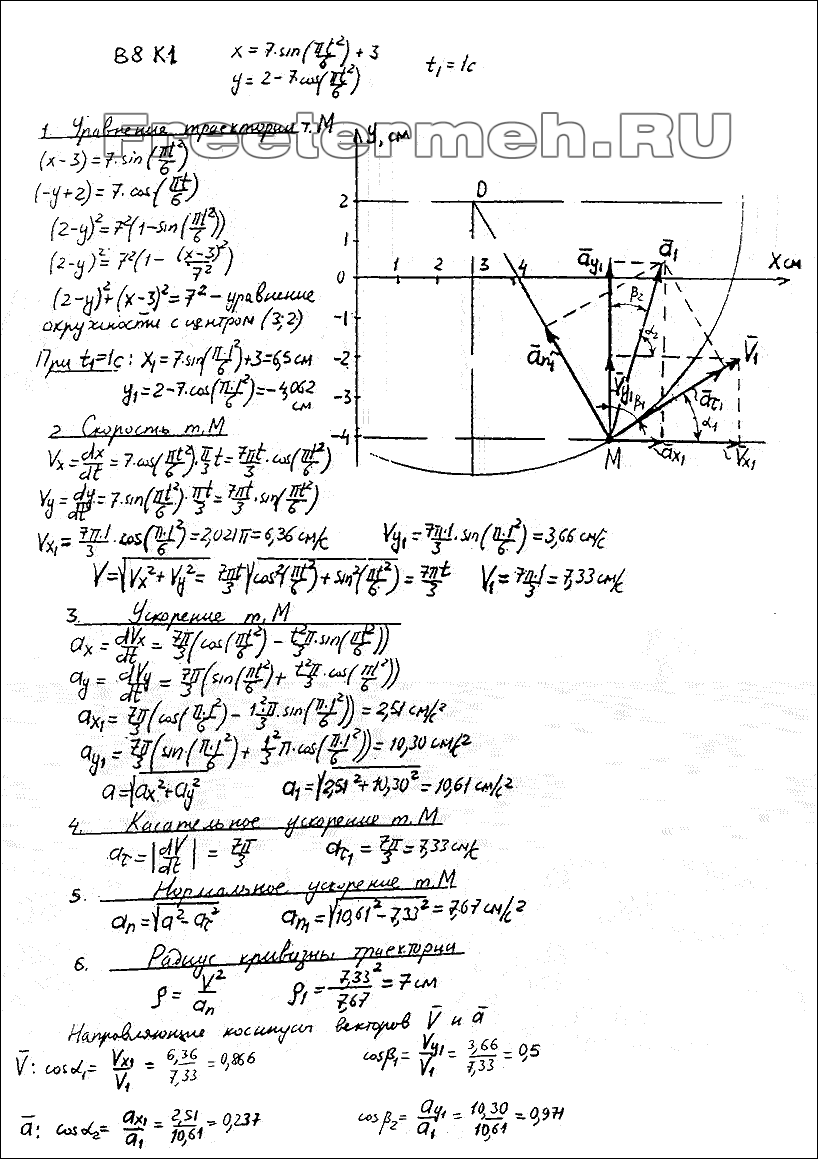 В8 К1   x = 7·sin(πt²/6) + 3
y = 2 - 7·cos(πt²/6)   t₁ = 1с
Freetermeh.RU
1. Уравнение траектории т. М
(x-3) = 7·sin(πt²/6)
(-y+2) = 7·cos(πt/6)
(2-y)² = 7²(1-sin(πt²/6))
(2-y)² = 7²(1 - (x-3)²/7²)
(2-y)² + (x-3)² = 7² - уравнение
окружности с центром (3;2)
При t₁=1с: x₁ = 7·sin(π·1²/6)+3 = 6,5 см
y₁ = 2-7·cos(π·1²/6) = -4,062
см
y, см
2
1
0
-1
-2
-3
-4
1 2 3 4
X см
D
ā y₁
ā₁
β₂
α₂
ā n₁
V̄ y₁
β₁
V̄₁
ā τ₁
α₁
M
ā x₁
V̄ x₁
2 Скорость т. М
Vx = dx/dt = 7·cos(πt²/6)·π/3 t = 7πt/3·cos(πt²/6)
Vy = dy/dt = 7·sin(πt²/6)·πt/3 = 7πt/3·sin(πt²/6)
Vx₁ = 7π·1/3·cos(π·1²/6) = 2,021π = 6,36 см/с   Vy₁ = 7π·1/3·sin(π·1²/6) = 3,66 см/с
V = √(Vx²+Vy²) = 7πt/3 √(cos²(πt²/6)+sin²(πt²/6)) = 7πt/3   V₁ = 7π·1/3 = 7,33 см/с
3. Ускорение т. М
ax = dVx/dt = 7π/3(cos(πt²/6) - t²π/3·sin(πt²/6))
ay = dVy/dt = 7π/3(sin(πt²/6) + t²π/3·cos(πt²/6))
ax₁ = 7π/3(cos(π·1²/6) - 1²π/3·sin(π·1²/6)) = 2,51 см/с²
ay₁ = 7π/3(sin(π·1²/6) + 1²/3 π·cos(π·1²/6)) = 10,30 см/с²
a = √(ax²+ay²)   a₁ = √(2,51²+10,30²) = 10,61 см/с²
4. Касательное ускорение т. М
aτ = |dV/dt| = 7π/3   aτ₁ = 7π/3 = 7,33 см/с
5. Нормальное ускорение т. М
an = √(a²-aτ²)   an₁ = √(10,61²-7,33²) = 7,67 см/с²
6. Радиус кривизны траектории
ρ = V²/an   ρ₁ = 7,33²/7,67 = 7 см
Направляющие косинусы векторов V̄ и ā
V̄: cosα₁ = Vx₁/V₁ = 6,36/7,33 = 0,866   cosβ₁ = Vy₁/V₁ = 3,66/7,33 = 0,5
ā: cosα₂ = ax₁/a₁ = 2,51/10,61 = 0,237   cosβ₂ = ay₁/a₁ = 10,30/10,61 = 0,971